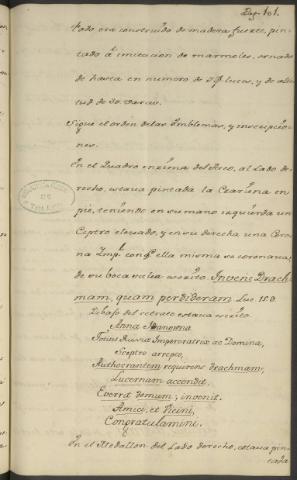 Pag. 101.
todo era construido de madera fuerte, pin-
tado á imitacion de marmoles, ornado
de hasta en numero de luces, y de alti-
tud de 30. varas.
Sigue el orden de las Emblemas, y inscripcio-
nes.
En el Quadro encima del Arco, al Lado de-
recho, estava pintada la Czariana en
pie, teniendo en su mano izquierda un
Ceptro elevado, y en su derecha una Coro-
na Imp.l con q.e ella misma se coronava;
de su boca salia escrito. Inveni Drach-
mam, quam perdideram Luc. 15.
Debaso del retrato estava escrito.
Anna Ivanowna
Totius Russiæ Imperatrix ac Domina,
Sceptro arrepto,
Authocrantem requirens drachmam,
Lucernam accendit.
Everrit domum; invenit.
Amici, et Vicini,
Congratulamini.
En el Medallon del Lado derecho, estava pin-
tada